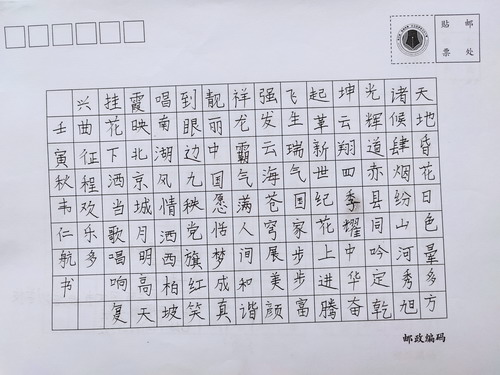 贴邮
票处
天地昏花日色晕多方
诸候肆烟纷山河秀旭
光辉道赤县同吟定乾
坤云翔四季耀中华奋
起革新世纪花上进腾
飞生瑞气国家步步富
强发云海苍穹展美颜
祥龙霸气满人间和谐
靓丽中国愿恬梦成真
到眼边九秧党旗红笑
唱南湖风情洒西柏坡
霞映北京城月明高天
挂花下洒当歌唱响复
兴曲征程欢乐多
壬寅秋韦仁航书
邮政编码